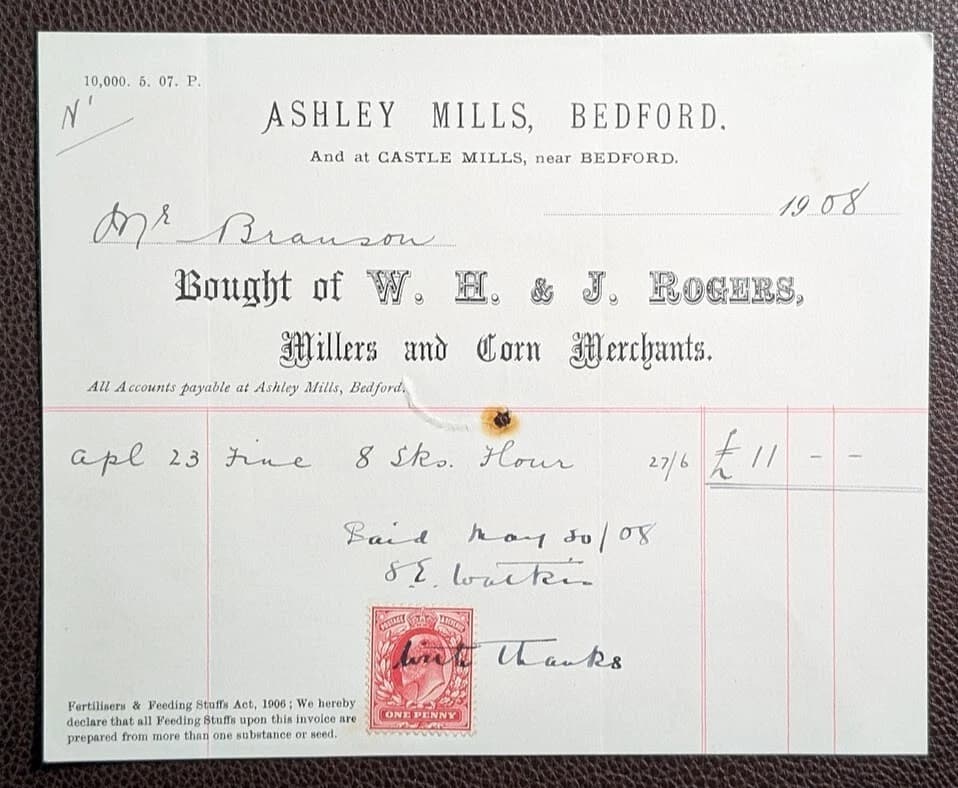 10,000. 5. 07. P.
N'
ASHLEY MILLS, BEDFORD.
And at CASTLE MILLS, near BEDFORD.
1908
Mr Branson
Bought of W. H. & J. ROGERS,
Millers and Corn Merchants.
All Accounts payable at Ashley Mills, Bedford.
apl 23 Fine 8 Sks. Flour 27/6 £ 11 - -
Paid May 30/08
S E. Watkin
POSTAGE & REVENUE
With Thanks
ONE PENNY
Fertilisers & Feeding Stuffs Act, 1906; We hereby
declare that all Feeding Stuffs upon this invoice are
prepared from more than one substance or seed.